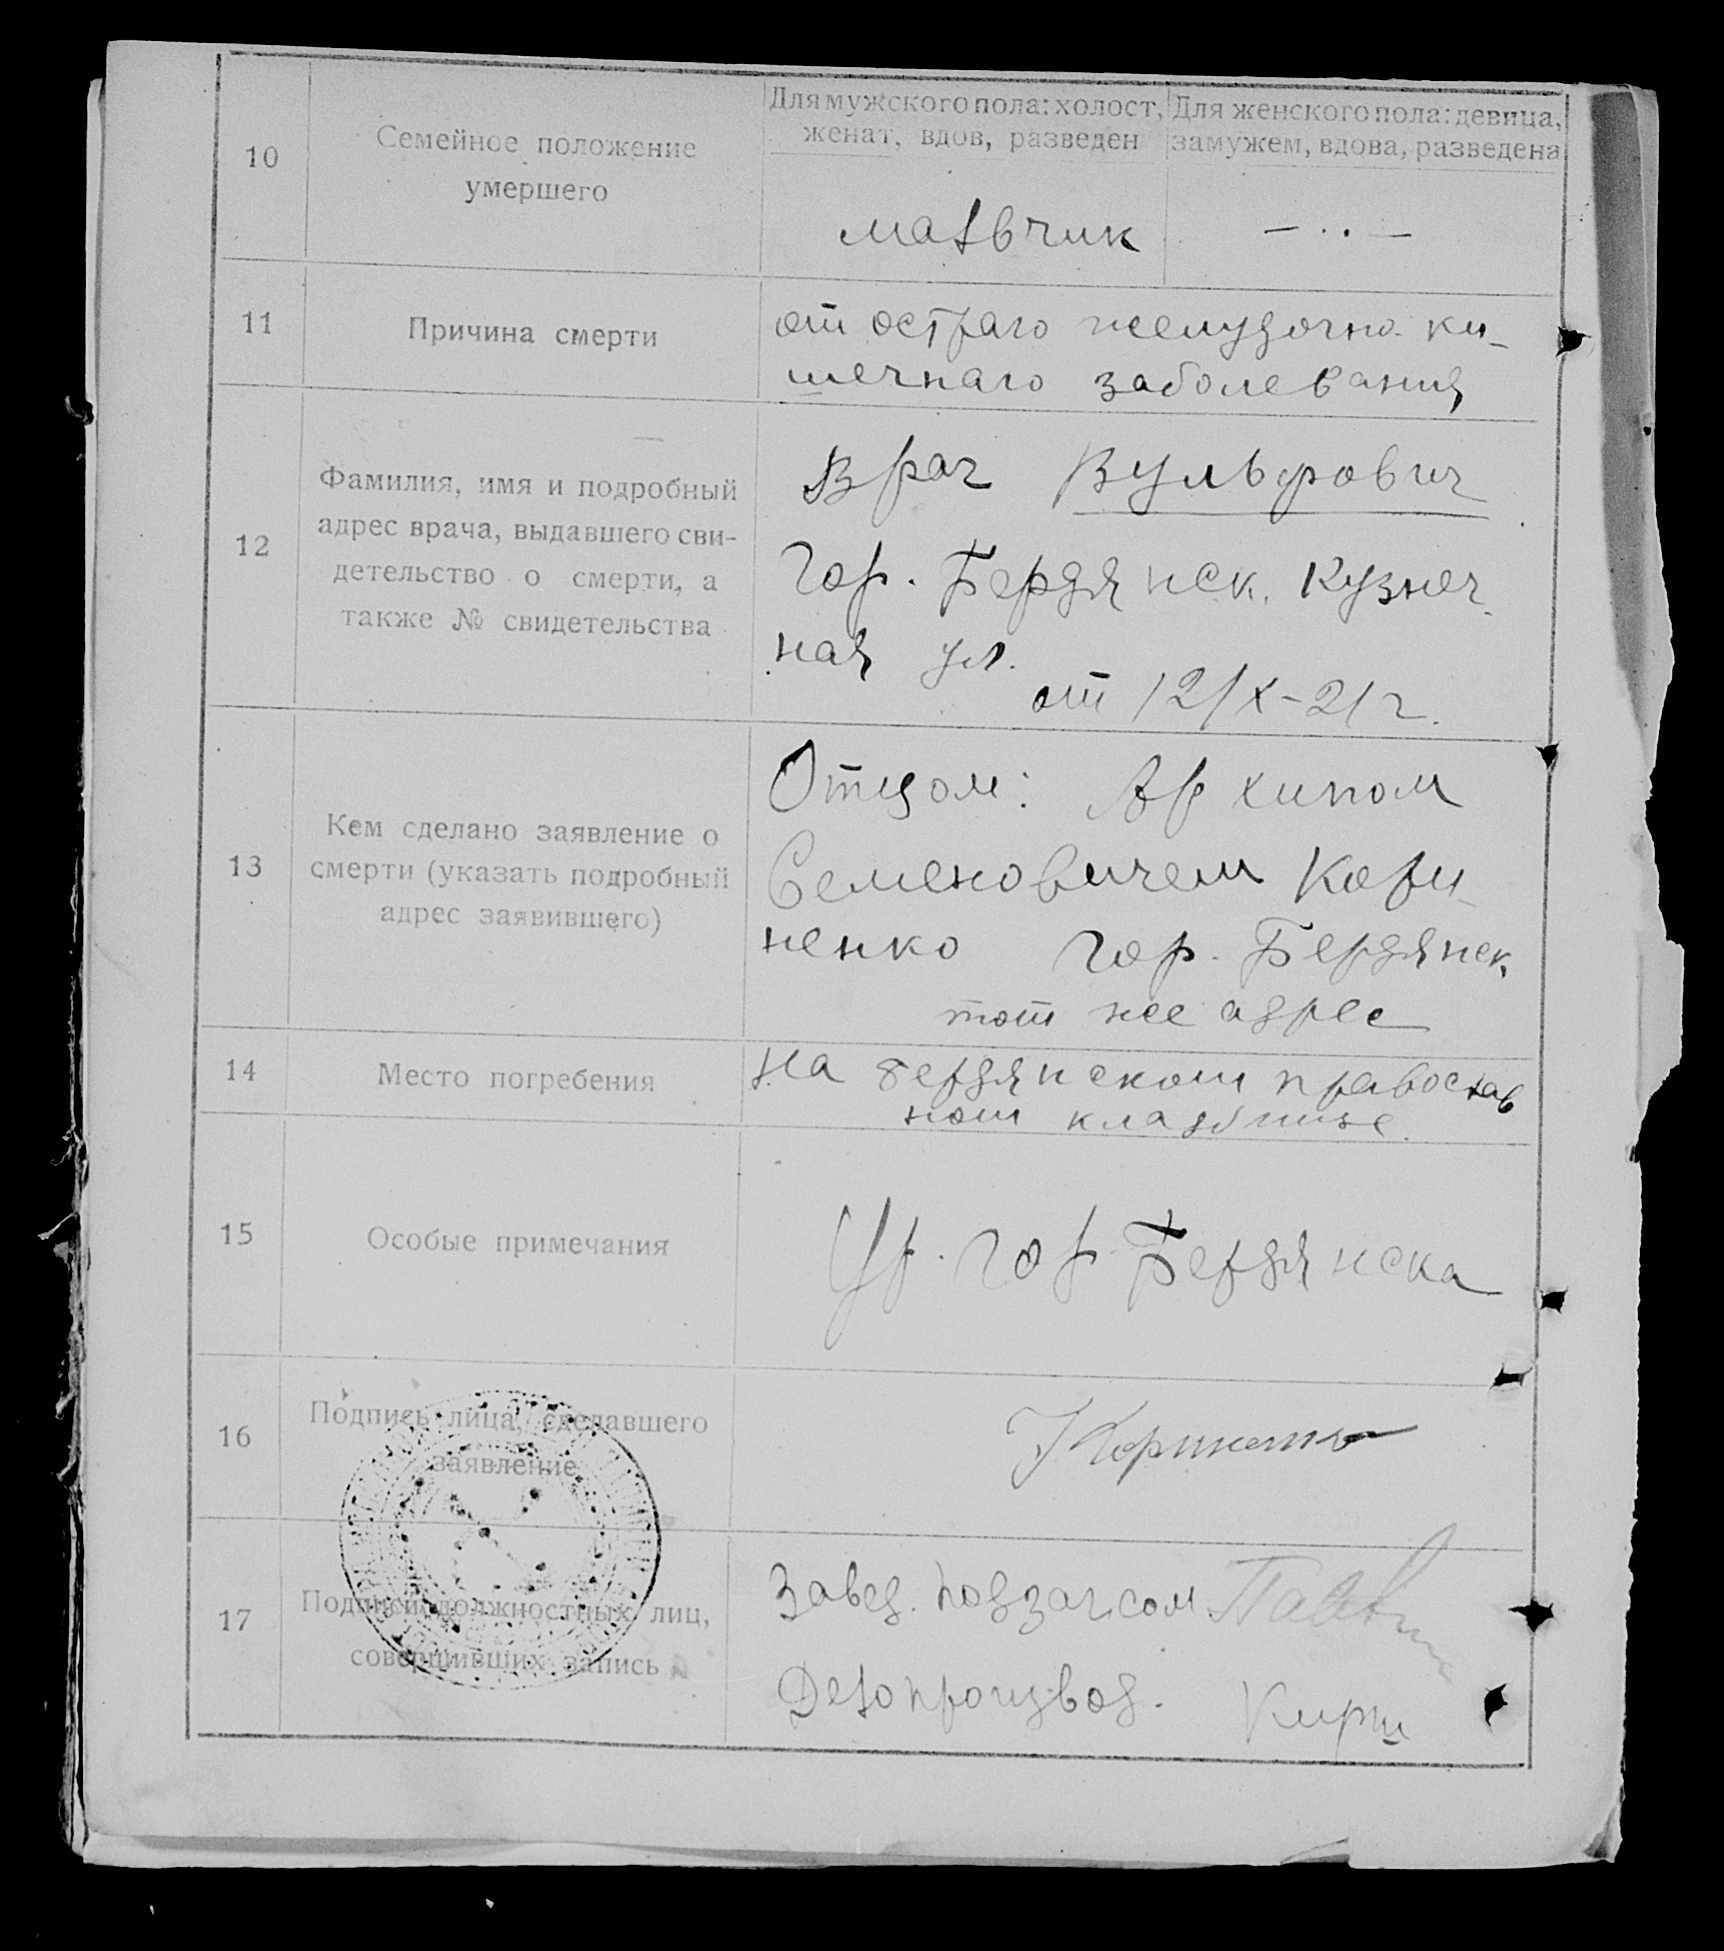 10
Семейное положение
умершего
Для мужского пола: холост,
женат, вдов, разведен
Для женского пола: девица,
замужем, вдова, разведена
мальчик
— · · —
11
Причина смерти
от остраго желудочно-ки-
шечнаго заболевания
12
Фамилия, имя и подробный
адрес врача, выдавшего сви-
детельство о смерти, а
также № свидетельства
Врач Вульфович
Гор. Бердянск. Кузнеч-
ная ул.
от 12/X-21 г.
13
Кем сделано заявление о
смерти (указать подробный
адрес заявившего)
Отцом: Архипом
Семеновичем Кори-
ненко Гор. Бердянск
тот же адрес
14
Место погребения
На бердянском православ
ном кладбище.
15
Особые примечания
Гр. гор. Бердянска
16
Подпись лица, сделавшего
заявление
17
Подписи должностных лиц,
совершивших запись
Завед. подзагсом
Делопроизвод. Кирш